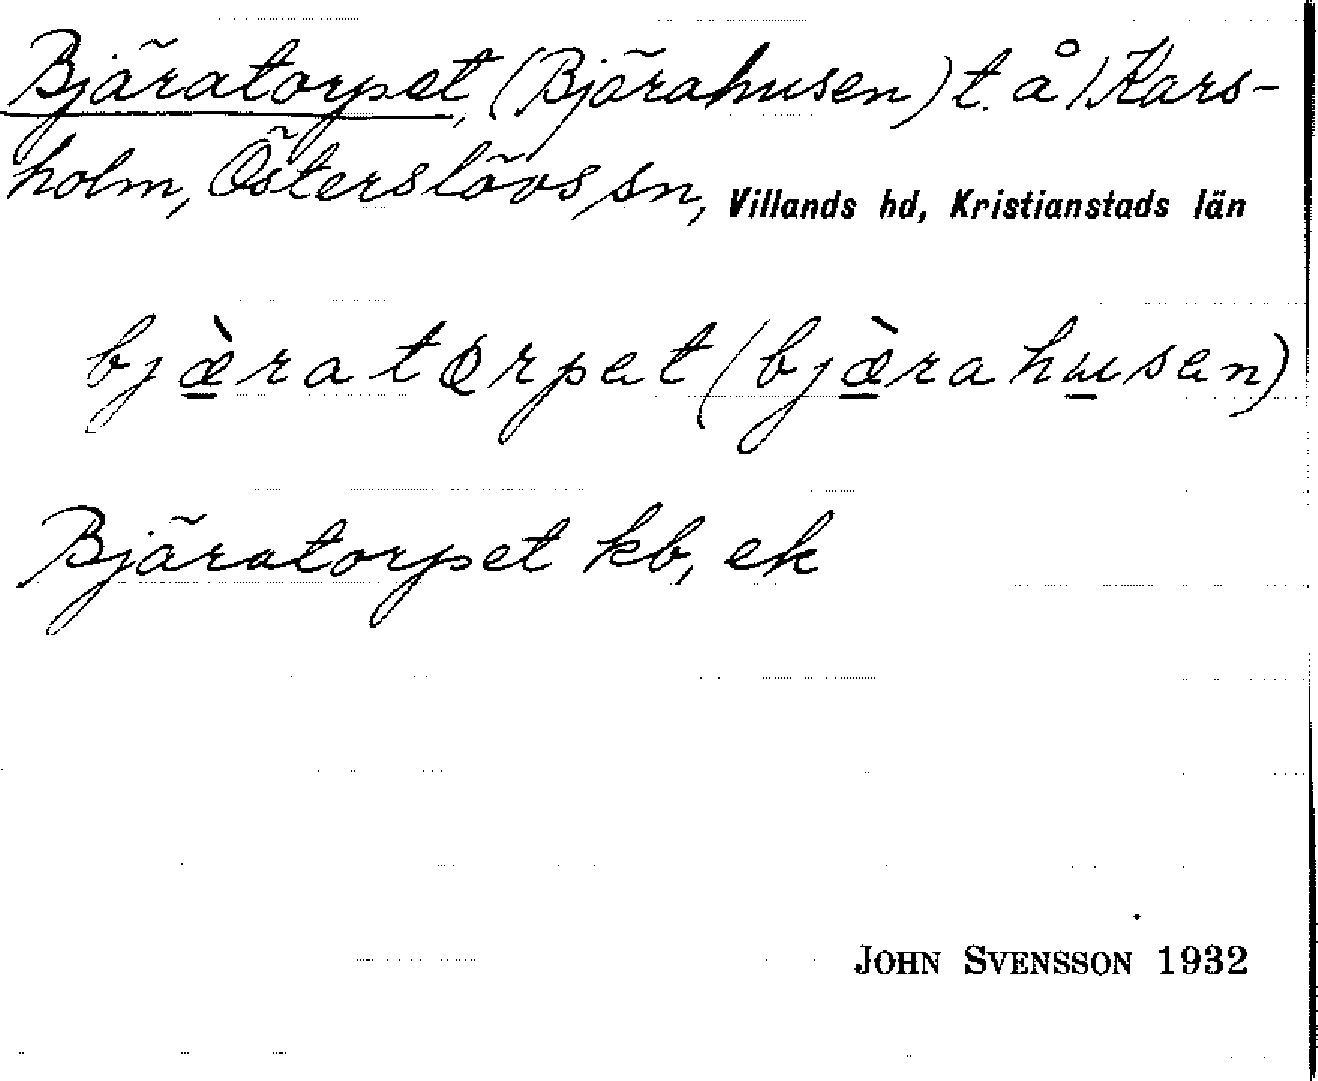 Bjäratorpet, (Bjärahusen) t. å /. Kars-
holm, Österslövs sn, Villands hd, Kristianstads län
bjæ̀ratɷrpet (bjæ̀rahusen)
Bjäratorpet kb, ek
JOHN SVENSSON 1932